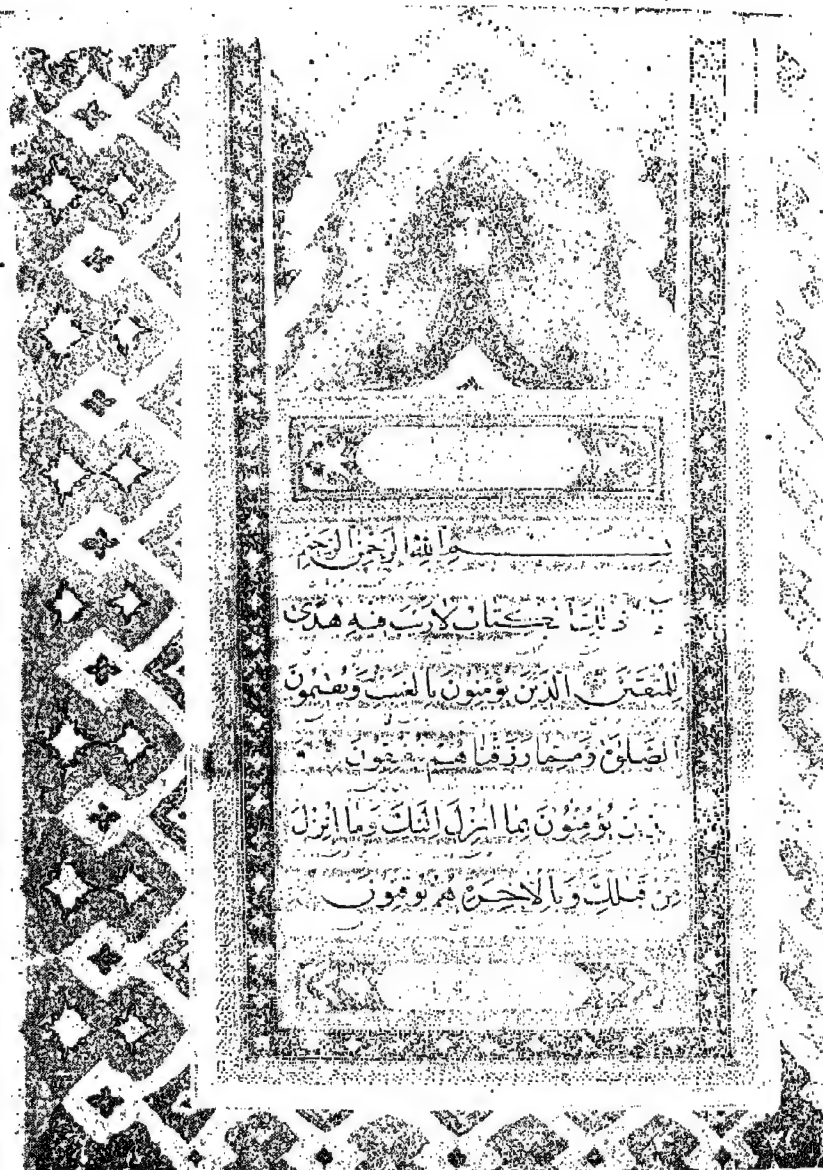 بِسْمِ اللهِ الرَّحْمٰنِ الرَّحِيْمِ
ذٰلِكَ الْكِتَابُ لَا رَيْبَ فِيْهِ هُدًى
لِلْمُتَّقِيْنَ الَّذِيْنَ يُؤْمِنُوْنَ بِالْغَيْبِ وَيُقِيْمُوْنَ
الصَّلٰوةَ وَمِمَّا رَزَقْنَاهُمْ يُنْفِقُوْنَ
يُؤْمِنُوْنَ بِمَا اُنْزِلَ اِلَيْكَ وَمَا اُنْزِلَ
مِنْ قَبْلِكَ وَبِالْاٰخِرَةِ هُمْ يُوْقِنُوْنَ